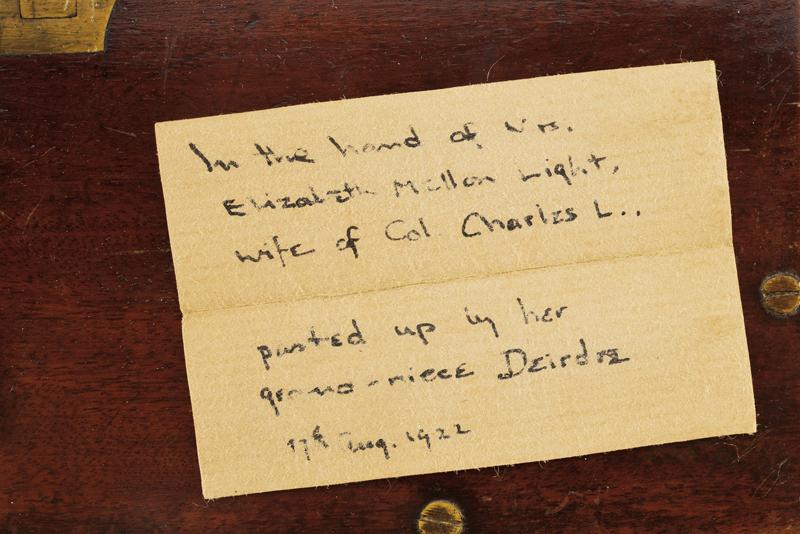 In the hand of Mrs.
Elizabeth Mellon Light,
wife of Col. Charles L.,
pasted up by her
grand-niece Deirdre
17th Aug. 1922